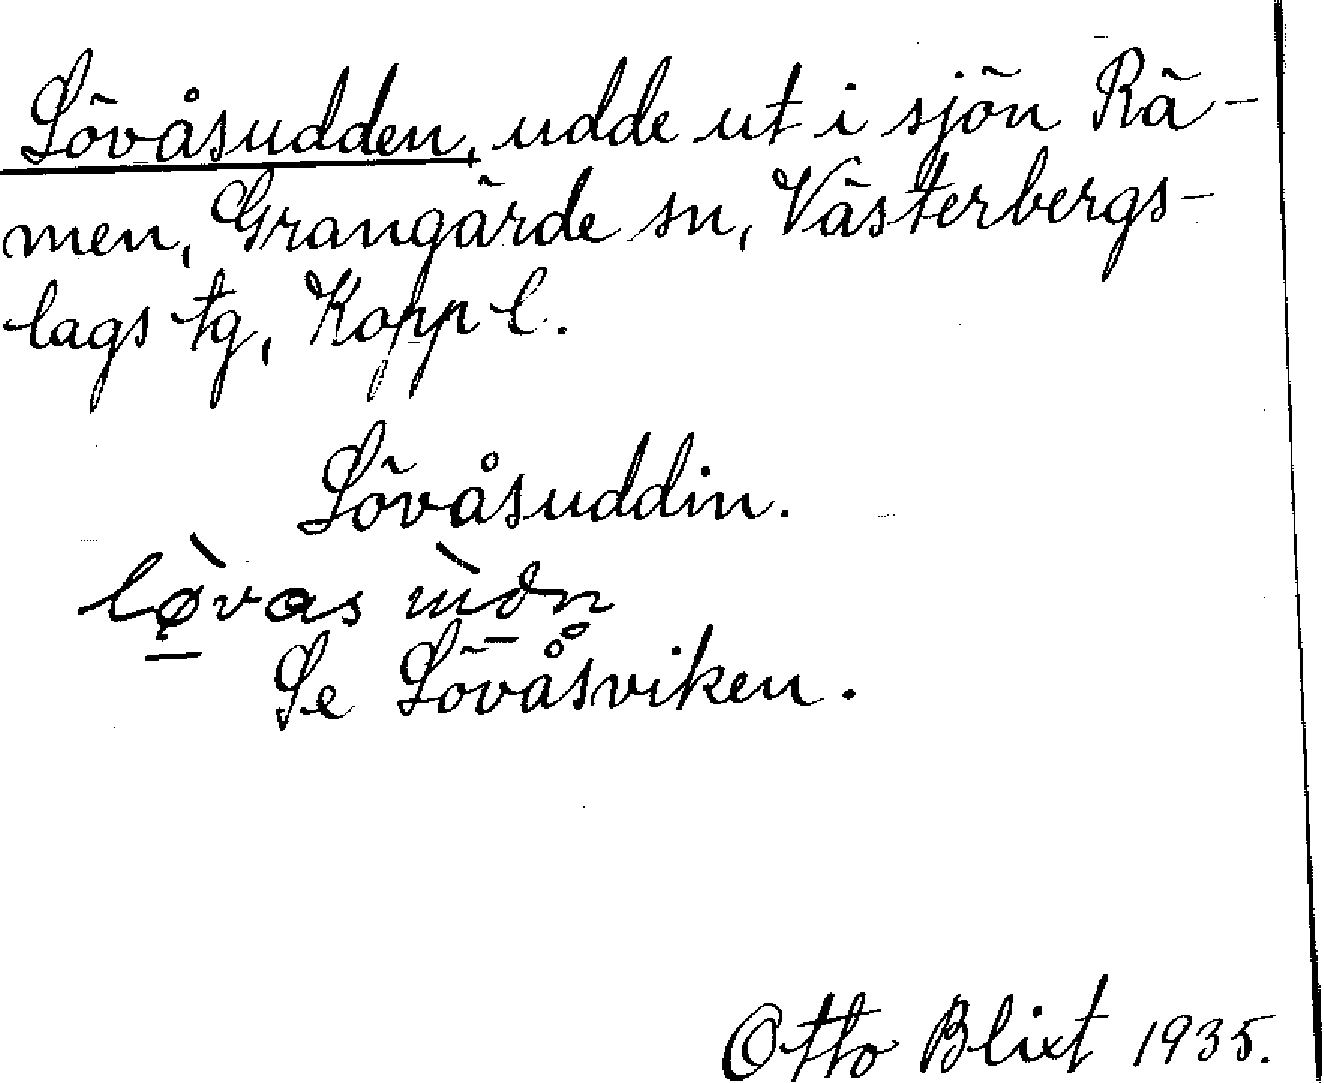 Lövåsudden, udde ut i sjön Rä-
men, Grangärde sn, Västerbergs-
lags tg, Kopp l.
Lövåsuddin.
Se Lövåsviken.
Otto Blixt 1935.